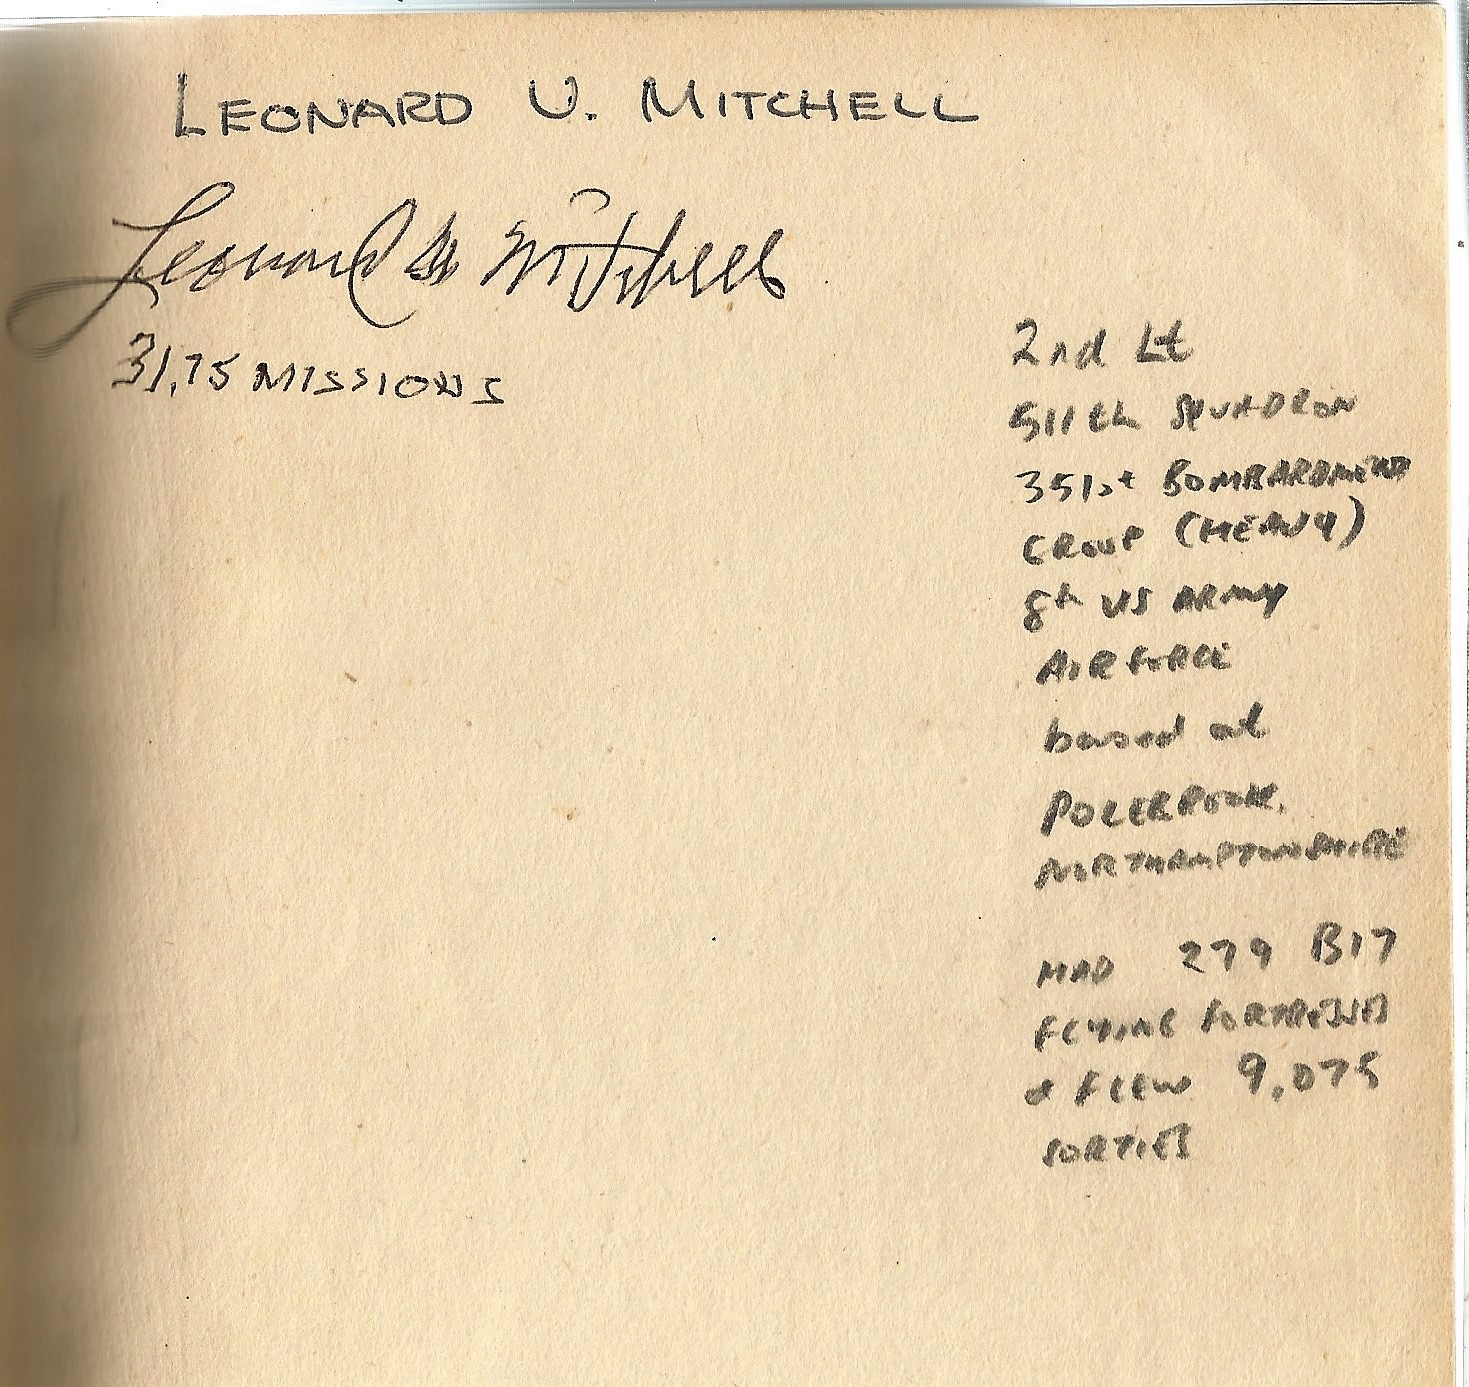 LEONARD U. MITCHELL
Leonard U Mitchell
31,75 MISSIONS
2nd Lt
511th SQUADRON
351st BOMBARDMENT
GROUP (HEAVY)
8th US ARMY
AIR FORCE
based at
POLEBROOK,
NORTHAMPTONSHIRE
HAD 279 B17
FLYING FORTRESSES
& FLEW 9,075
SORTIES